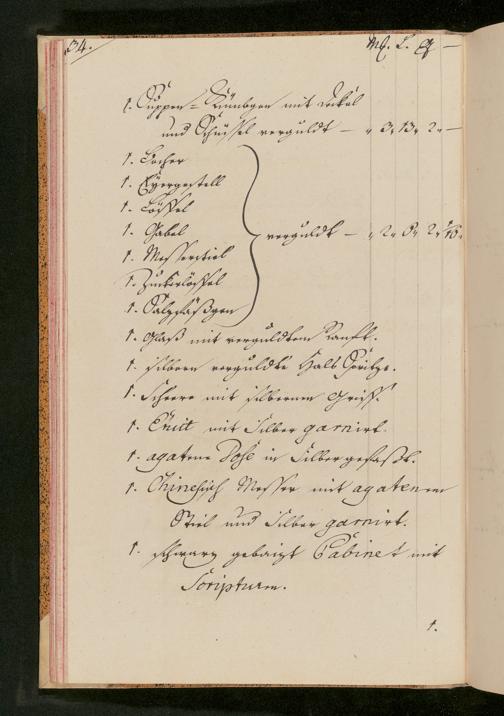 34.
M. L. q
1. Suppen= mit Dekel
und Schüssel verguldt — " 3. 13. 2. —
1. Becher
1. Eyergestell
1. Löffel
1. Gabel
1. Messerstiel
1. Zuckerlöffel
1. Salzfäßgen
verguldt — " 2.
1. Glaß mit verguldtem Ranft.
1. silbern verguldte Halß Spritze.
1. Scheere mit silbernem Griff.
1. mit Silber garnirt.
1. agatene Dose in Silber gefaßt.
1. Chinesisch Messer mit agatenem
Stiel und Silber garnirt.
1. schwarz gebaizt Cabinet mit
Scripturn.
1.